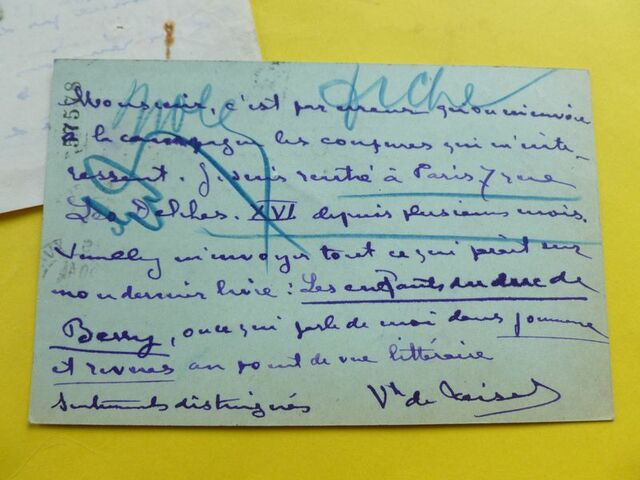 Monsieur, c'est par erreur qu'on m'envoie
à la campagne les coupures qui m'inté-
ressent. Je suis rentré à Paris 7 rue
Les XVI depuis plusieurs mois.
Veuillez m'envoyer tout ce qui paraît sur
mon dernier livre : Les enfants du duc de
Berry, ou ce qui parle de moi dans journaux
et revues au point de vue littéraire
Sentiments distingués
Vte de Reiset
fiche